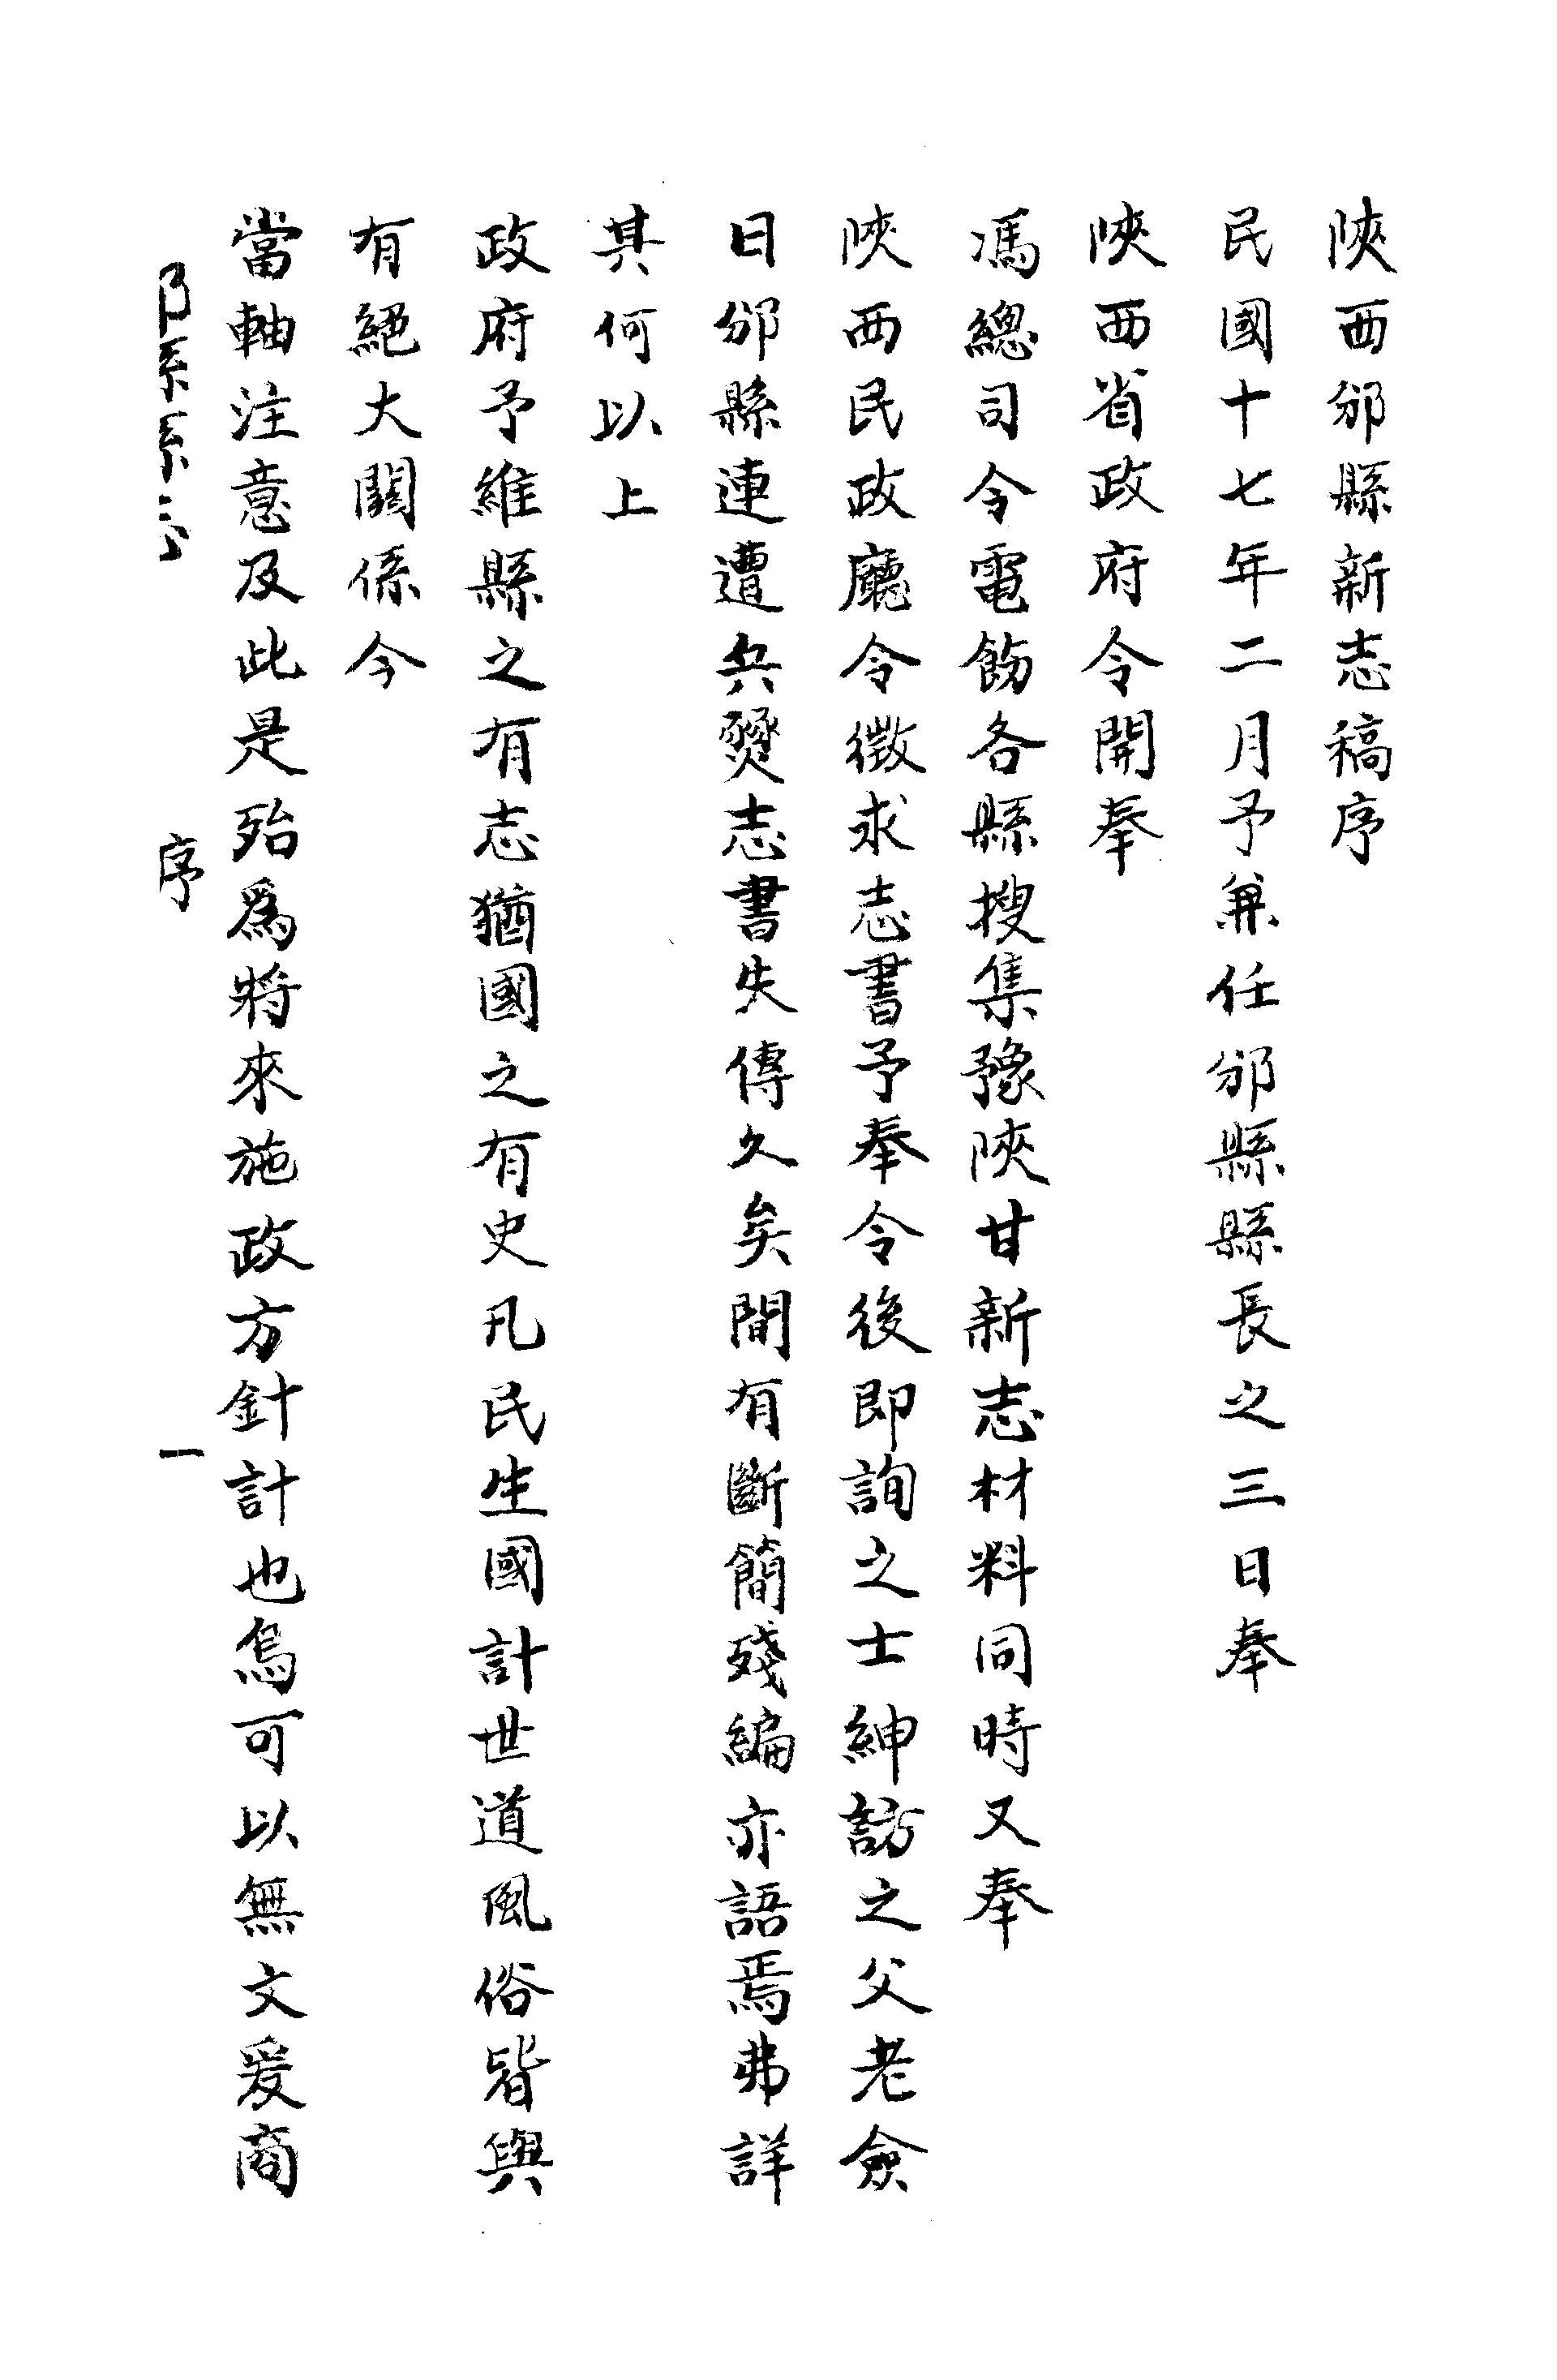 陝西邠縣新志稿序
民國十七年二月予兼任邠縣縣長之三日奉
陝西省政府令開奉
馮總司令電飭各縣搜集豫陝甘新志材料同時又奉
陝西民政廳令徵求志書予奉令後即詢之士紳訪之父老僉
日邠縣連遭兵燹志書失傳久矣間有斷簡殘編亦語焉弗詳
其何以上
政府予維縣之有志猶國之有史凡民生國計世道風俗皆與
有絕大關係今
當軸注意及此是殆爲將來施政方針計也烏可以無文爰商
序 一